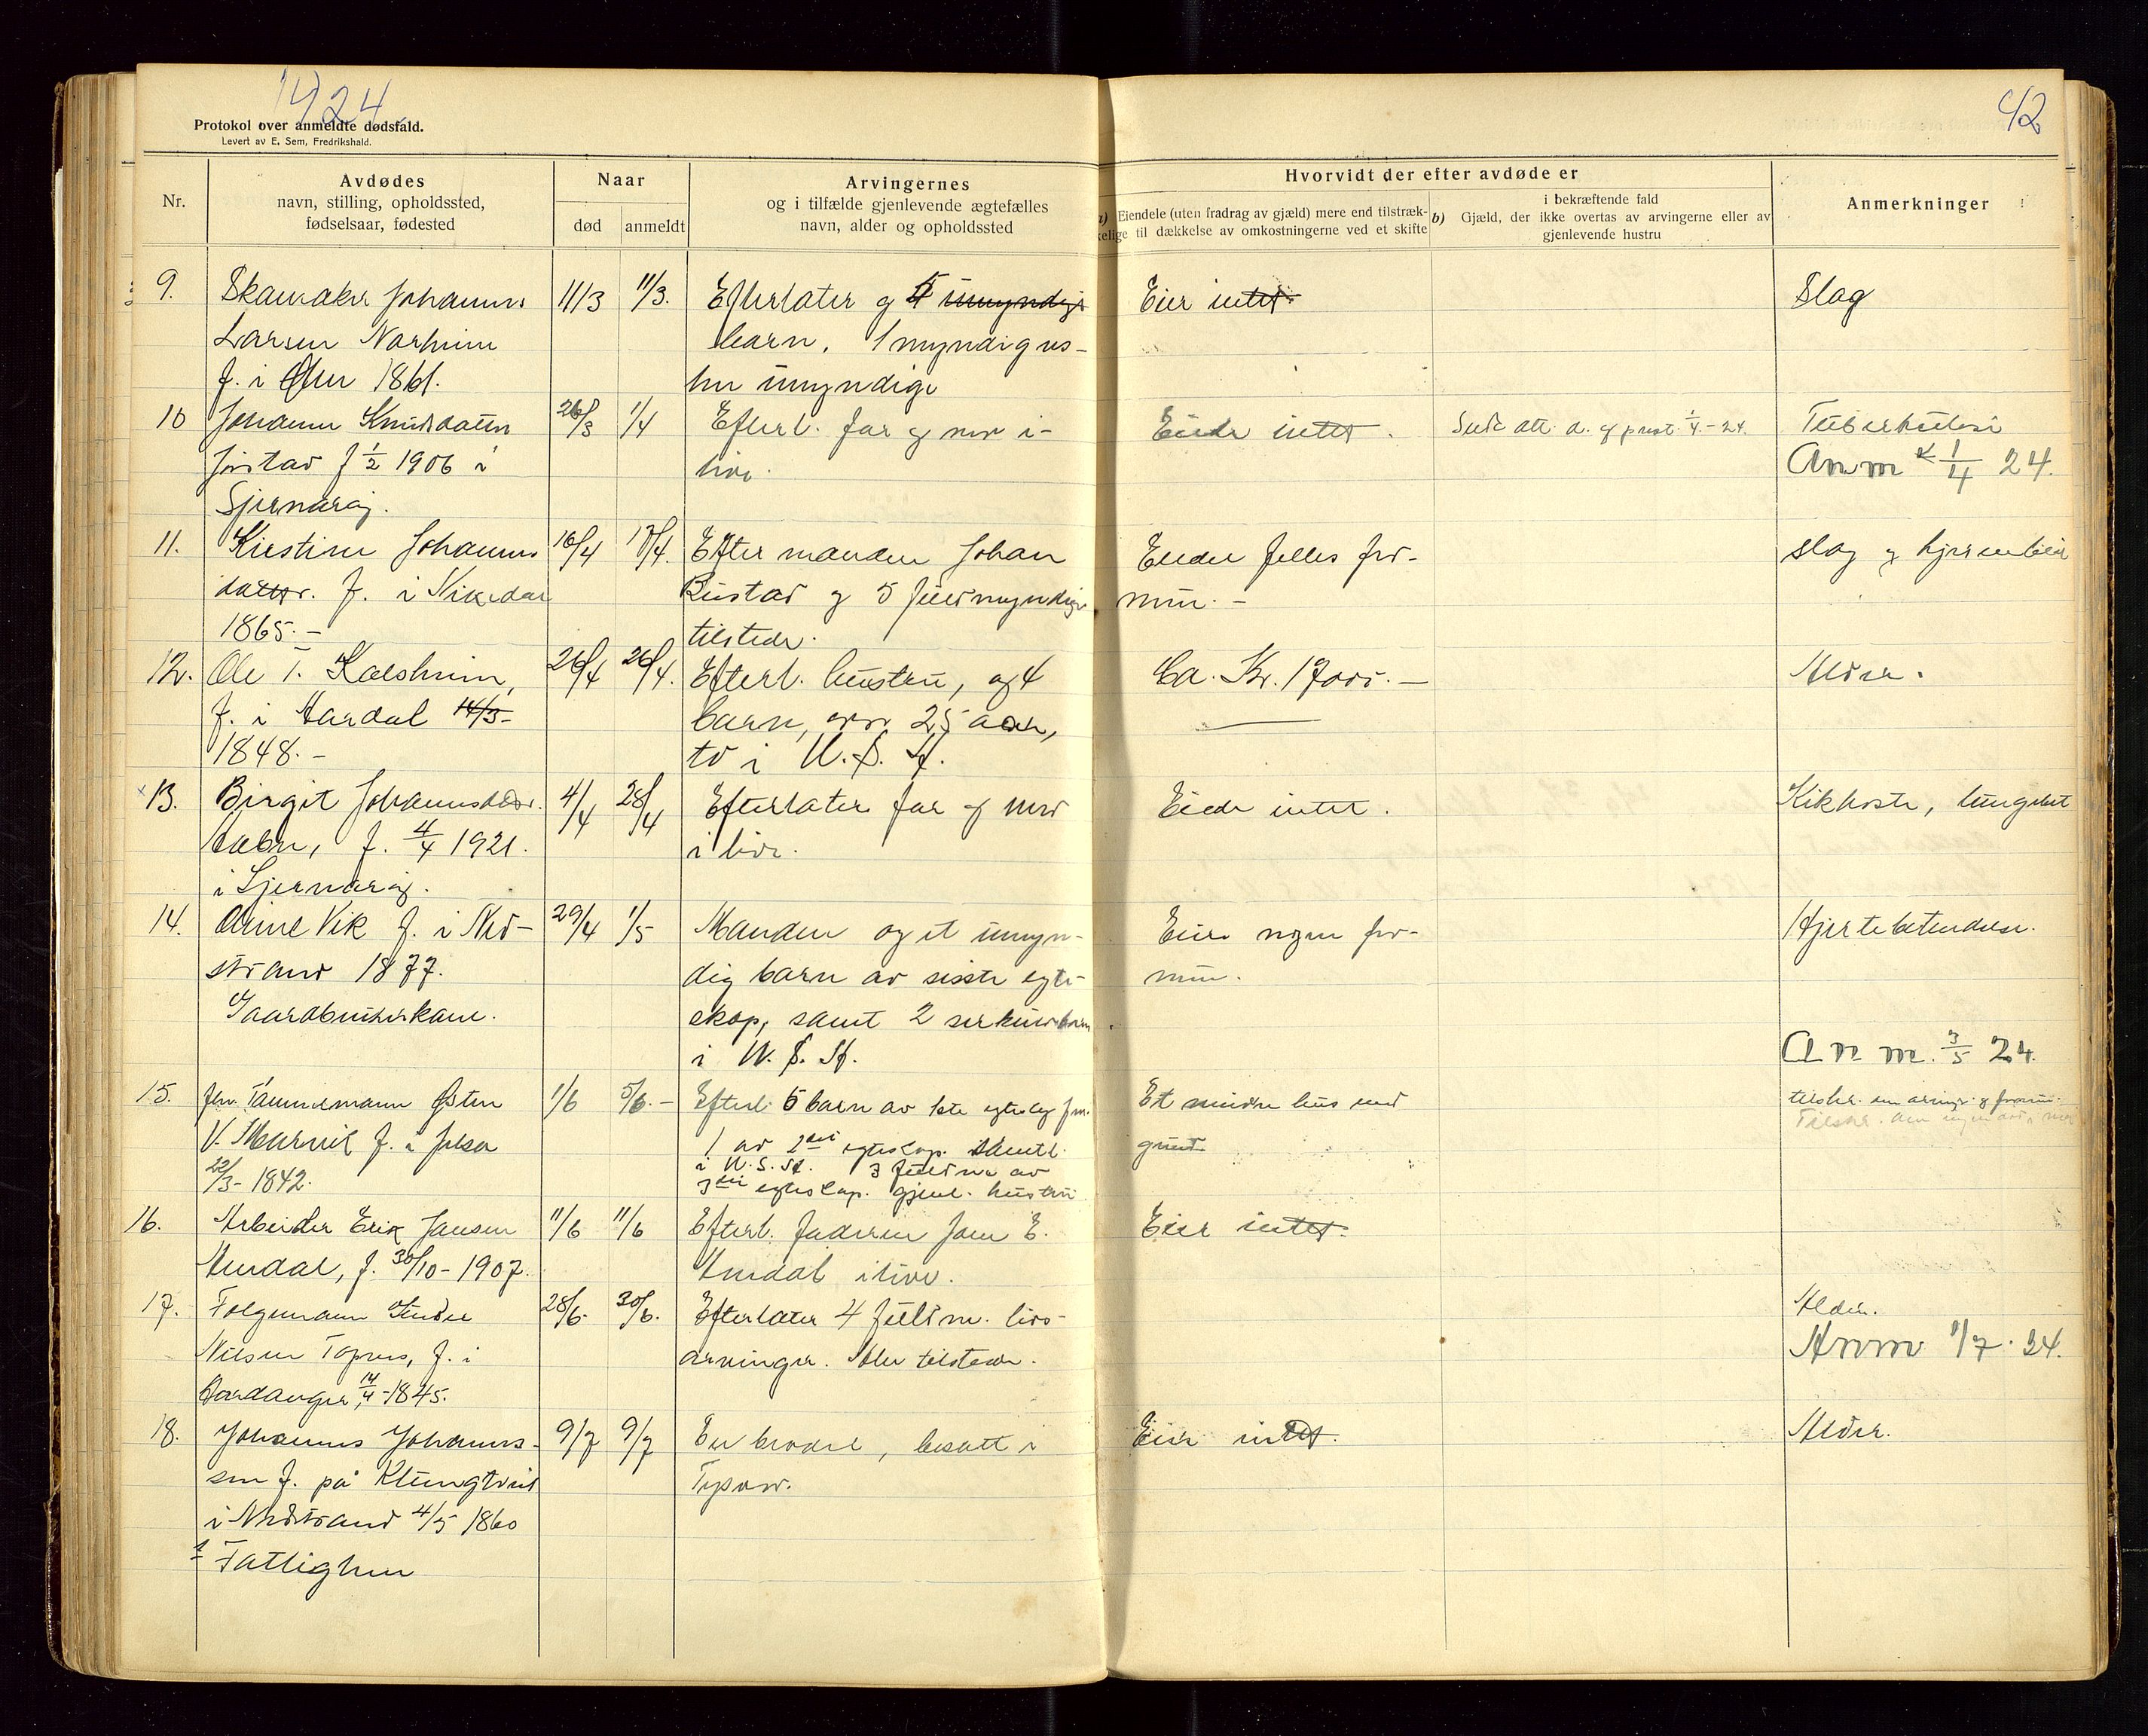 1924.
42
Protokol over anmeldte dødsfald.
Levert av E. Sem, Fredrikshald.
Nr.
Avdødes
navn, stilling, opholdssted,
fødselsaar, fødested
Naar
død
anmeldt
Arvingernes
og i tilfælde gjenlevende ægtefælles
navn, alder og opholdssted
Hvorvidt der efter avdøde er
a) Eiendele (uten fradrag av gjæld) mere end tilstræk-
kelige til dækkelse av omkostningerne ved et skifte
i bekræftende fald
b) Gjæld, der ikke overtas av arvingerne eller av
gjenlevende hustru
Anmerkninger
9. Skomaker Johannes 11/3 11/3. Efterlater og 5 umyndige Eier intet. Slag
Larsen Norheim barn. 1 myndig res-
f. i 1861. ten umyndige
10 Johanne Knudsdatter 26/3 1/4 Efterl. far og mor i- Eiede intet. Sendt att. a. og prest 1/4-24. Tuberkulose
f 1/2 1906 i live. Anm 1/4 24.
Sjernarøy.
11. Kirstine Johannes 16/4 17/4. Efter manden Johan Eiendel felles for- slag og hjernebløt
datter. f. i Vikedal Bustad og 5 fuldmyndige mue. -
1865. - tilstede.
12. Ole T. Kolsheim, 26/4 26/4. Efterl. hustru, og 4 Ca. Kr. 17000. - Alder.
f. i Aardal 14/3- barn, over 25 aar,
1848. - to i U. S. A.
13. Birgit Johannesdatter. 4/4 28/4 Efterlater far og mor Eiede intet. Kikhoste, lungebet
f. 4/4 1921. i live.
i Sjernarøy.
14. Anne Vik f. i Ned- 29/4 1/5 Manden og et umyn- Eier nogen for- Hjertebetendelse.
strand 1877. dig barn av siste egte- mue.
Gaardbrukerkone. skap, samt 2 særkuldsbarn
i U. S. A. Anm. 3/5 24.
15. Tømmermann Østen 1/6 5/6. - Efterl. 6 barn av 1ste egteskap fm. Et mindre hus med tilskr. om arvinger og formue.
V. Marvik f. i Jelsa 1 av 2det egteskap. samtl. grund
22/3- 1842. i U. S. A. 3 fuldm av
3die egteskap. gjenl. hustru
16. Arbeider Erik Jansen 11/6 11/6 Efterl. faderen Jon E. Eier intet.
f. 30/10- 1907. i live.
17. Følgemann Sjur 28/6. 30/6. Efterlater 4 fuldm. livs- Alder.
Nilsen Topnes, f. i arvinger. Alle tilstede. Anm 1/7. 24.
Hardanger, 14/4-1845.
18. Johannes Johannes- 9/7 9/7 En brodre, bosatt i Eier intet. Alder.
sen f. på Klungtveit Tysvær.
i Nedstrand 4/5 1860
Fattiglem